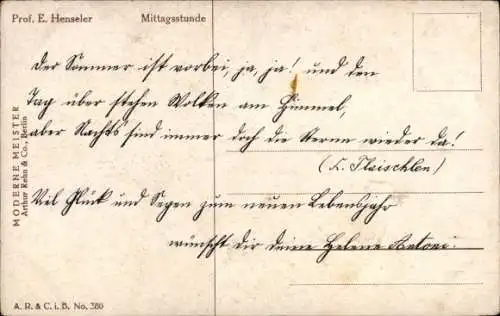 Prof. E. Henseler Mittagsstunde
Der Sommer ist vorbei, ja, ja! und den
Tag über stehen Wolken am Himmel,
aber Nachts sind immer doch die Sterne wieder da!
(C. Flaischlen)
Viel Glück und Segen zum neuen Lebensjahr
wünscht Dir Deine Helene Antoni.
MODERNE MEISTER
Arthur Rehn & Co., Berlin
A. R. & C. i. B. No. 380